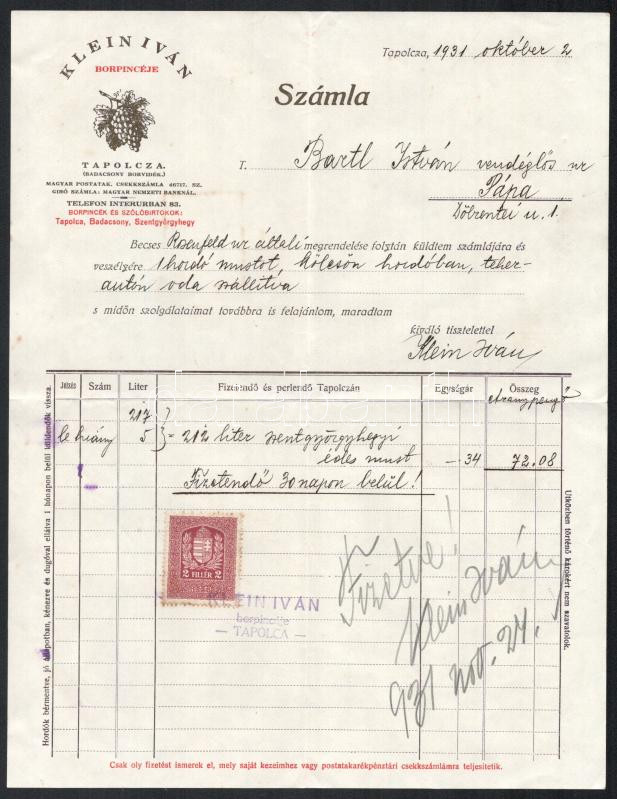 KLEIN IVÁN
BORPINCÉJE
TAPOLCZA.
(BADACSONY BORVIDÉK.)
MAGYAR POSTATAK. CSEKKSZÁMLA 46717. SZ.
GIRÓ SZÁMLA: MAGYAR NEMZETI BANKNÁL.
TELEFON INTERURBAN 83.
BORPINCÉK ÉS SZŐLŐBIRTOKOK:
Tapolca, Badacsony, Szentgyörgyhegy
Tapolcza, 1931 október 2
Számla
T. Bartl István vendéglős ur
Pápa
Döbrentei u. 1.
Becses Rosenfeld ur általi megrendelése folytán küldtem számlájára és
veszélyére 1 hordó mustot, kölcsön hordóban, teher-
autón oda szállítva
s midőn szolgálataimat továbbra is felajánlom, maradtam
kiváló tisztelettel
Klein Iván
Jelzés Szám Liter Fizetendő és perlendő Tapolczán Egységár Összeg
Aranypengő
217
le hiány 5 = 212 liter szentgyörgyhegyi
édes must —.34 72.08
Fizetendő 30 napon belül!
2 FILLÉR 2
KLEIN IVÁN
borpincéje
— TAPOLCA
Fizetve!
Klein Iván
931 nov. 24.
Hordók bérmentve, jó állapotban, kénezve és dugóval ellátva 1 hónapon belül küldendők vissza.
Utközben történő károkért nem szavatolok.
Csak oly fizetést ismerek el, mely saját kezeimhez vagy postatakarékpénztári csekkszámlámra teljesítetik.